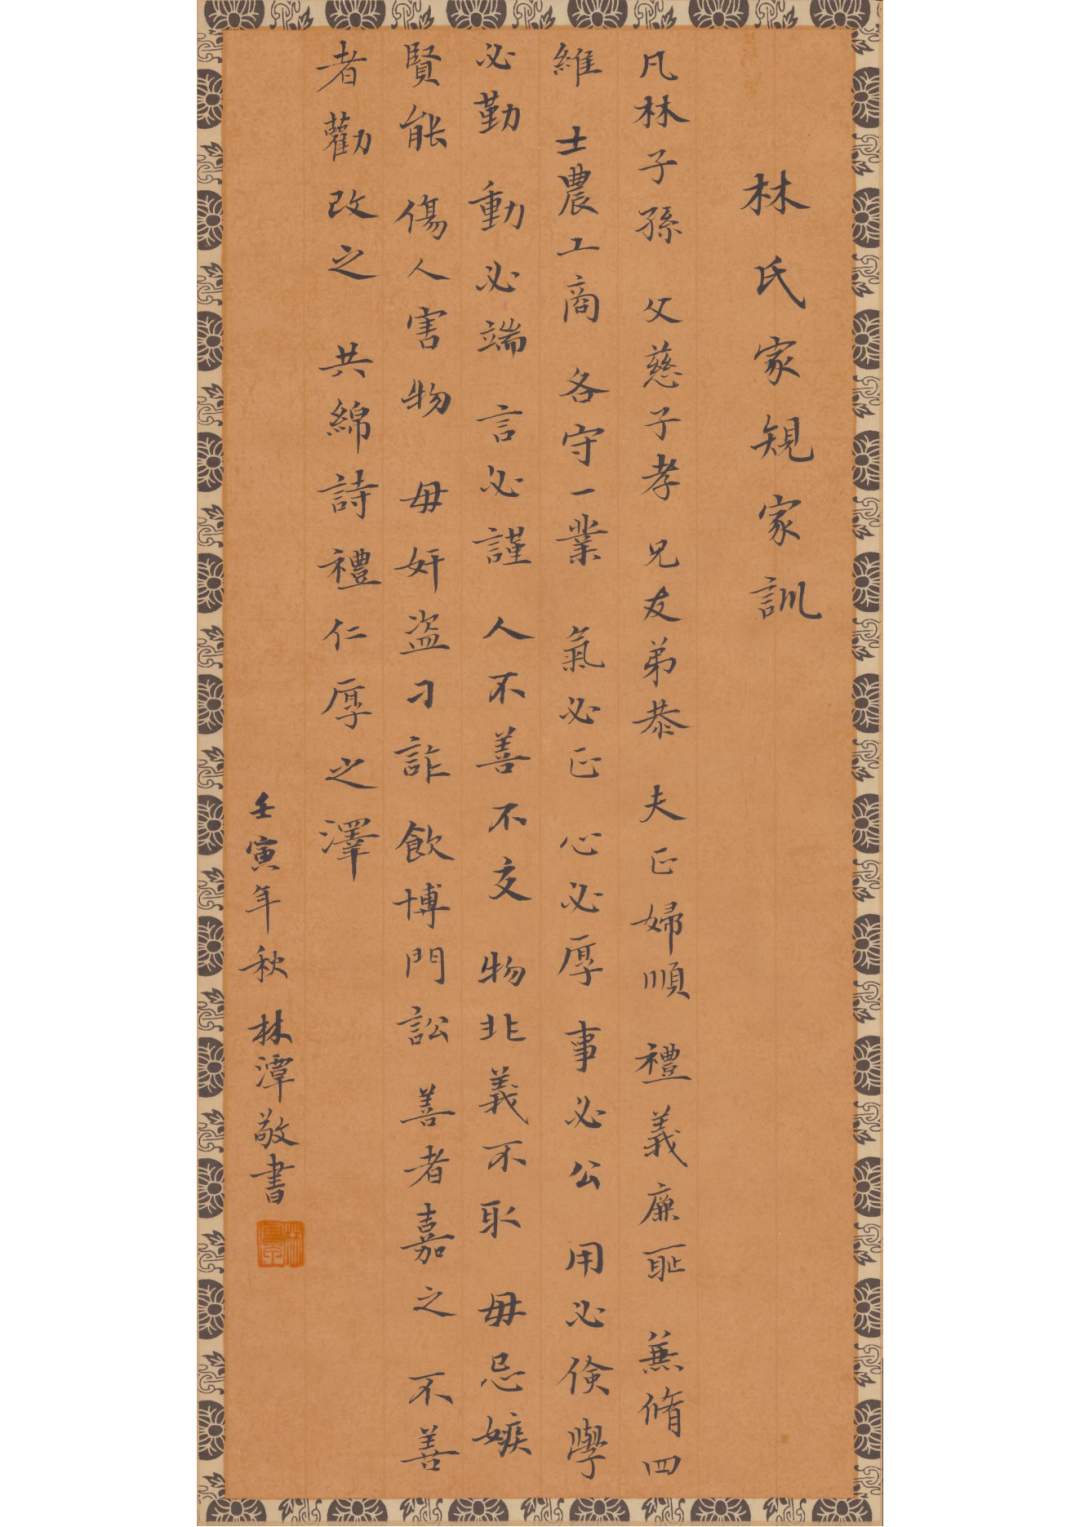 林氏家規家訓
凡林子孫 父慈子孝 兄友弟恭 夫正婦順 禮義廉恥 兼脩四
維 士農工商 各守一業 氣必正 心必厚 事必公 用必儉 學
必勤 動必端 言必謹 人不善不交 物非義不取 毋忌嫉
賢能 傷人害物 毋奸盜刁詐 飲博門訟 善者嘉之 不善
者勸改之 共綿詩禮仁厚之澤
壬寅年秋 林潭敬書